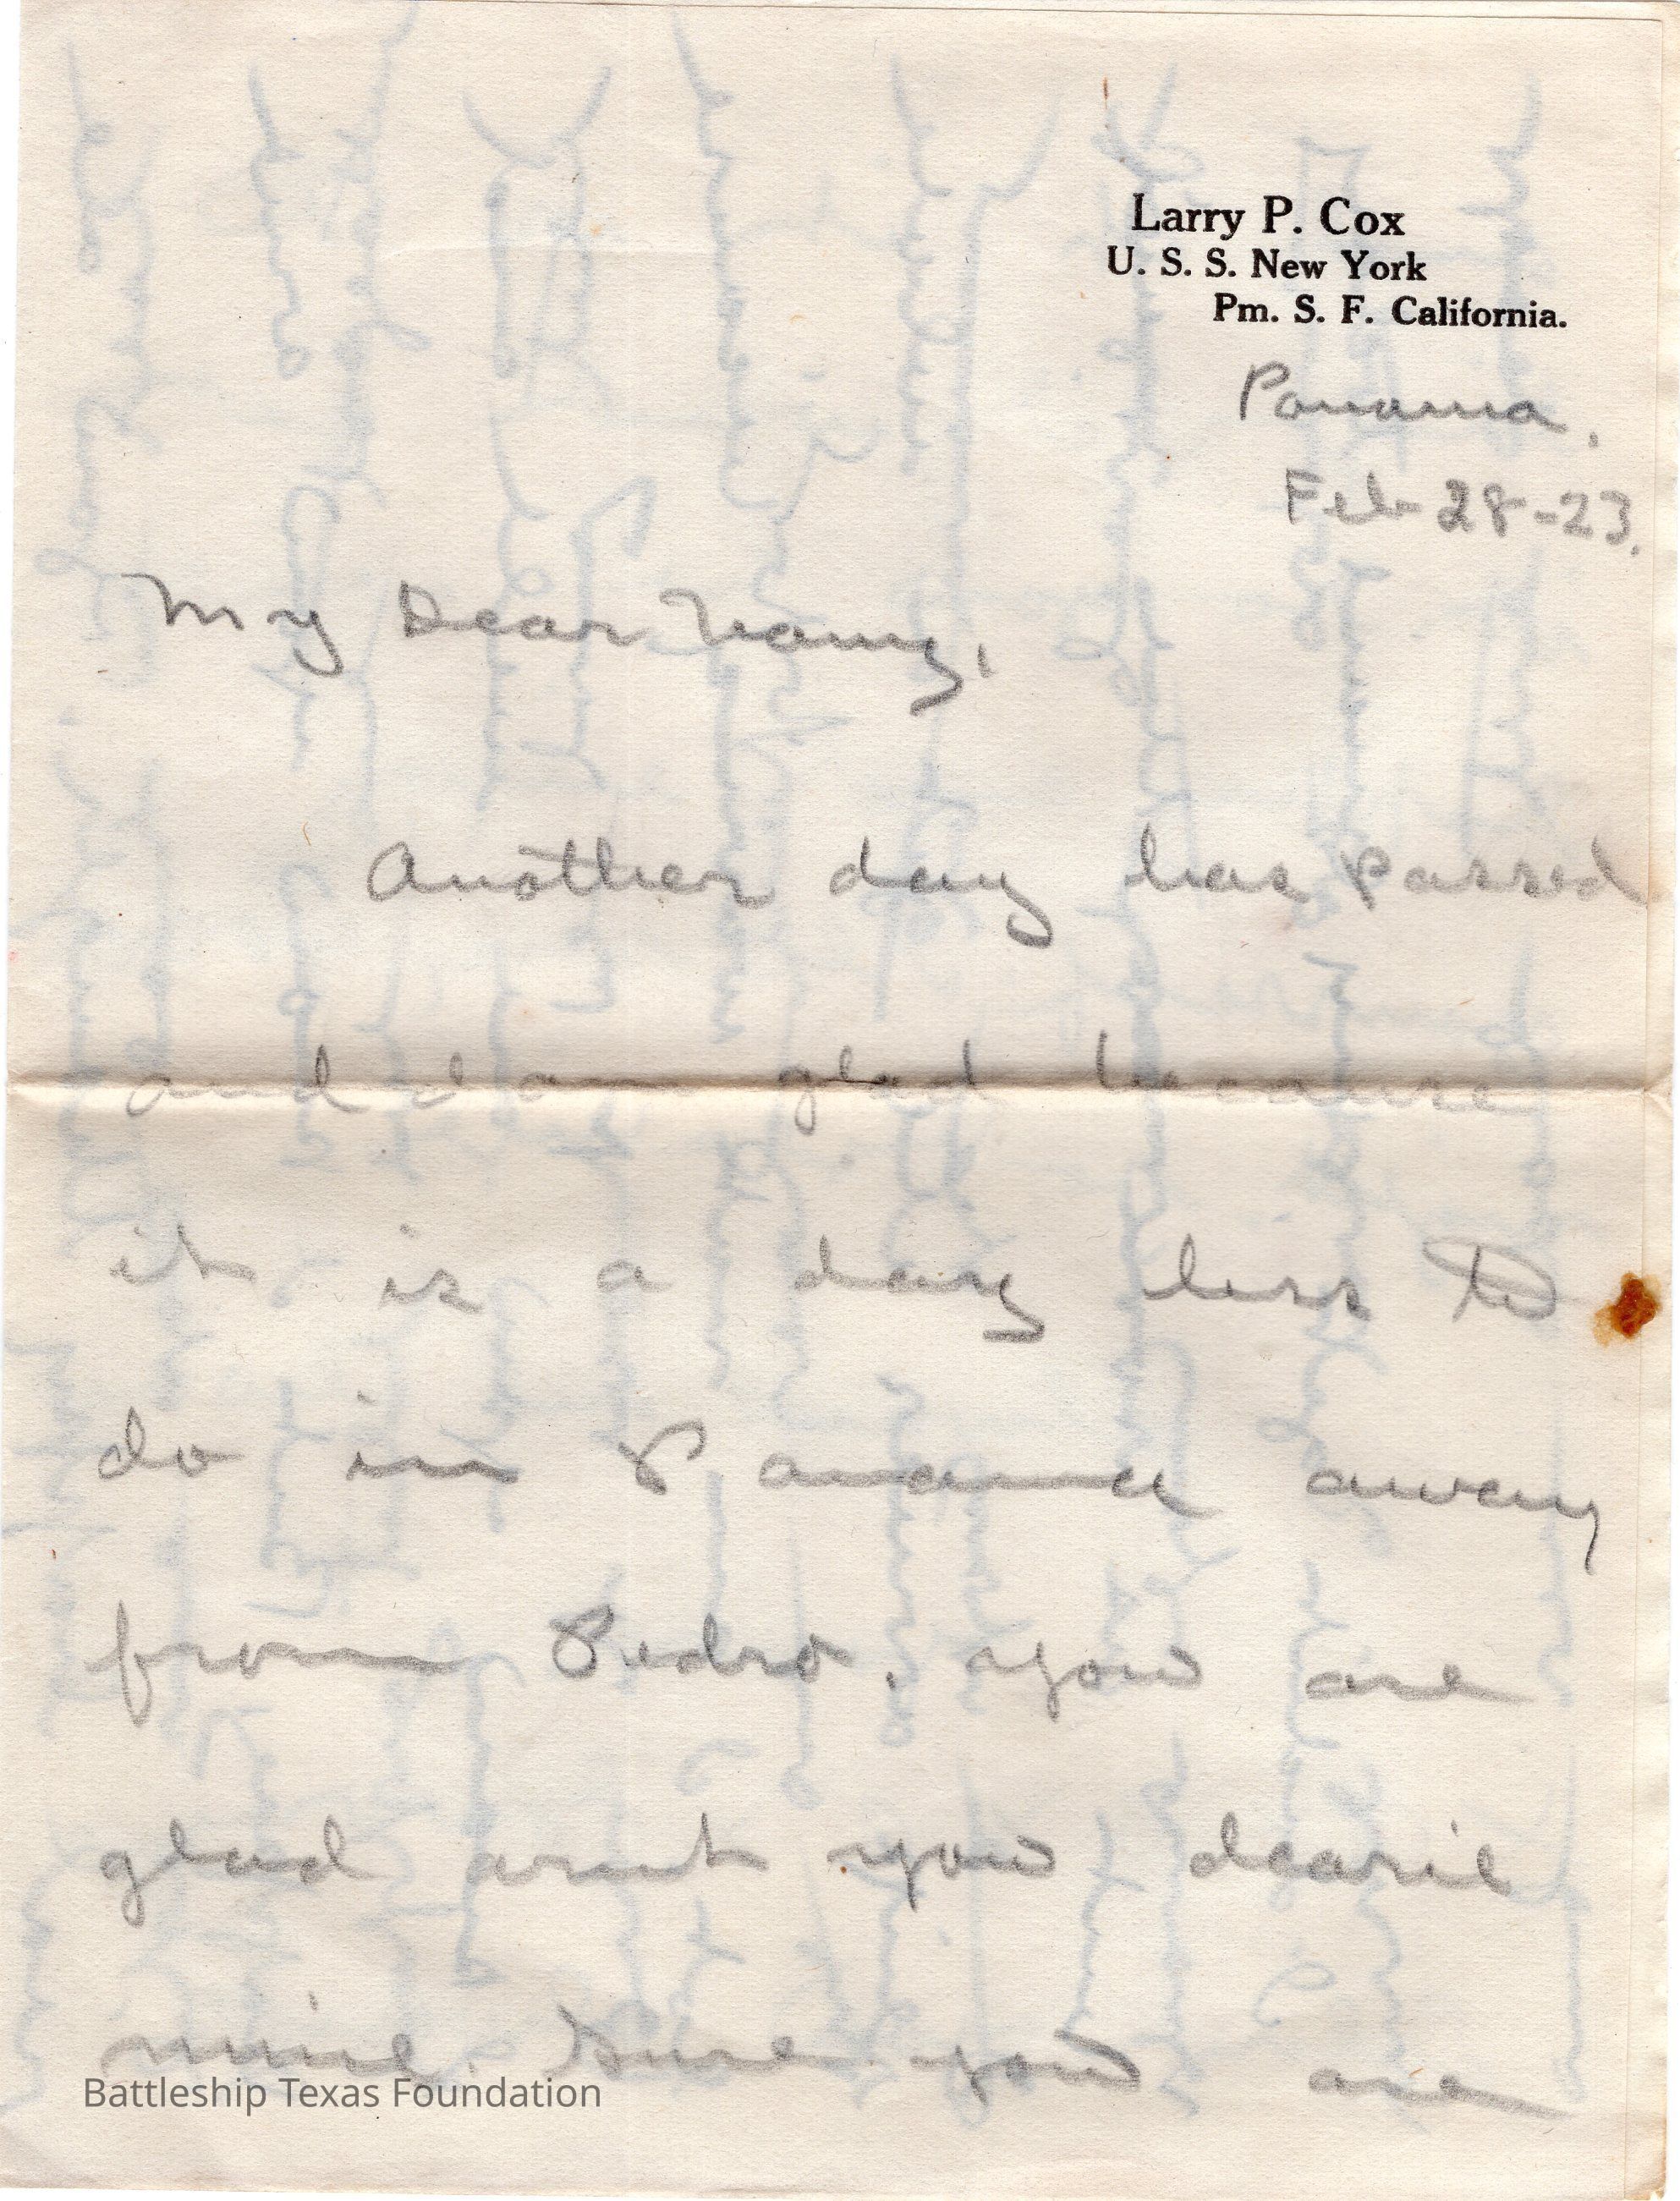 Larry P. Cox
U. S. S. New York
Pm. S. F. California.
Panama.
Feb-28-23.
My Dear Nancy,
Another day has passed
and I am glad because
it is a day less to
do in Panama away
from Pedro. You are
glad arnt you dearie
mine. Sure you are
Battleship Texas Foundation